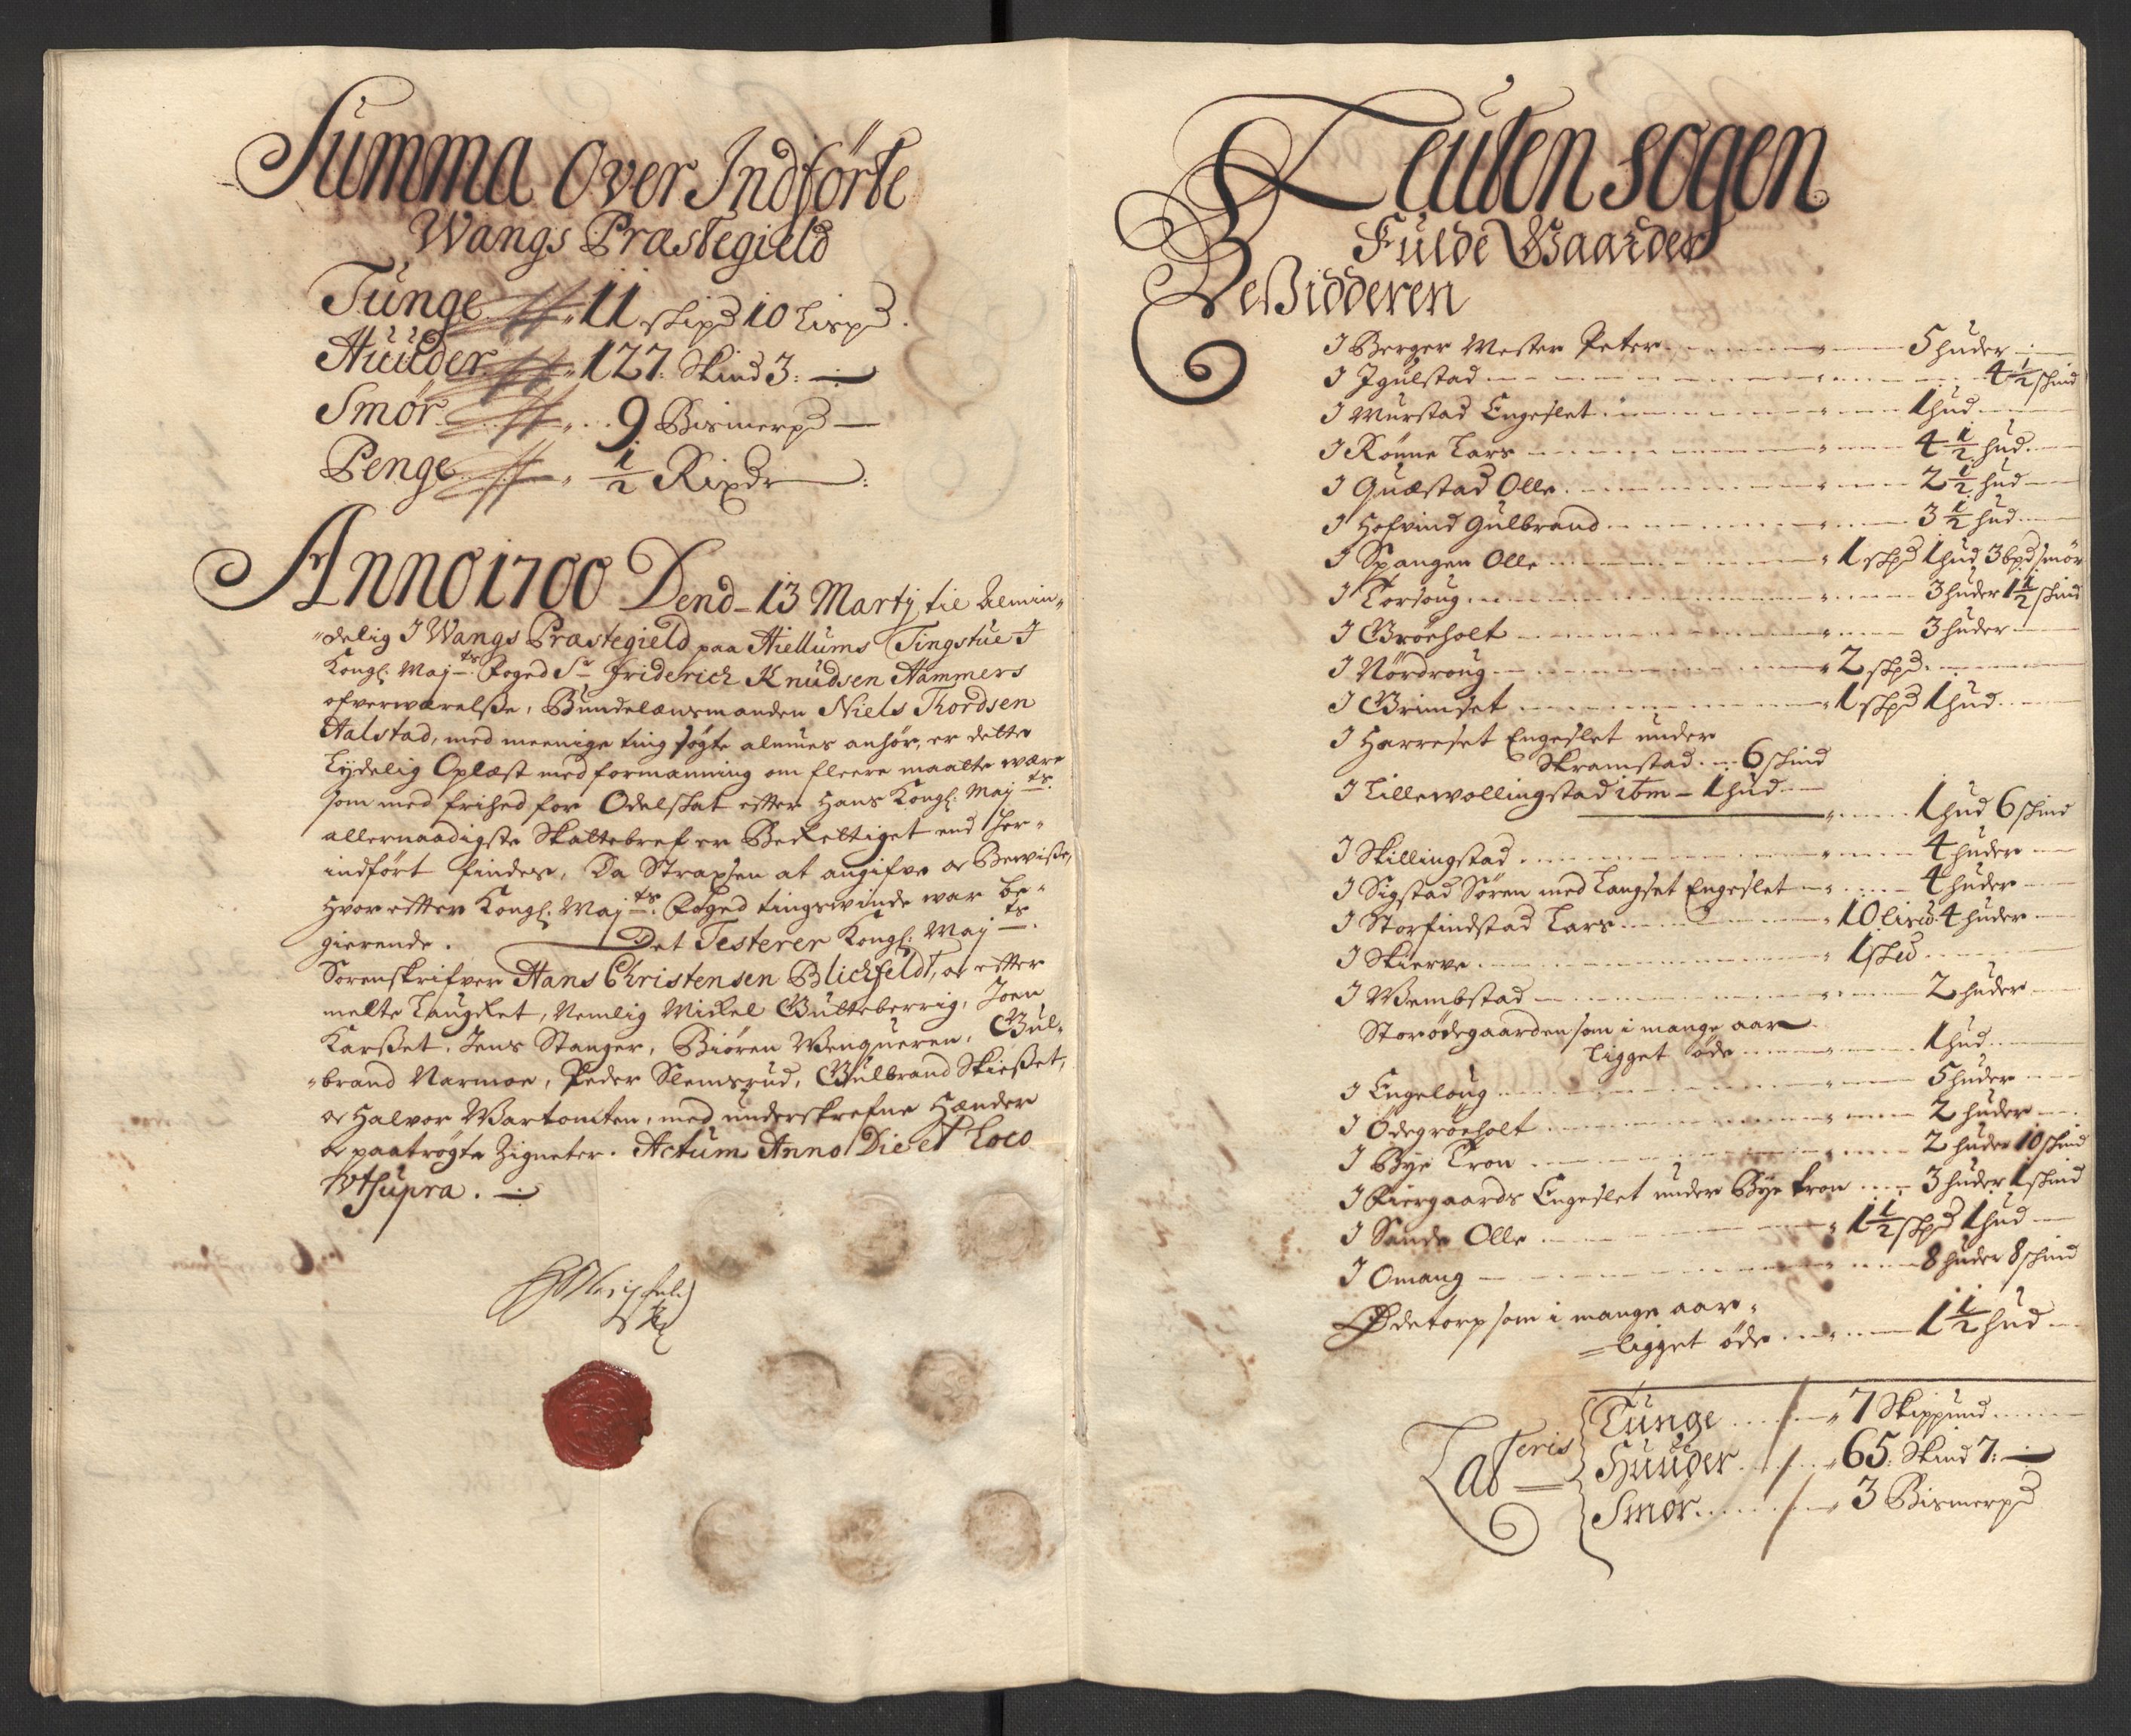 Summa Over Indförte
Wangs Præstegield
Tunge 11 skipd 10 Lispd.
Huuder 127. Skind 3.
Smör 9 Bismerpd
Penge ½ Rixdr
Anno 1700 Dend 13 Martj til Almin,,
,,delig J Wangs Præstegield paa Hiellums Tingstue J
Kongl. Maj.ts Foged Sr Friderich Knudsen Hammers
ofverwærelsse, Bundelænsmanden Niels Thordsen
Aalstad, med meenige ting søgte almues anhør, er dette
Lydelig Oplæst med formanning om fleere maatte være
som med frihed for Odelskat efter Hans Kongl. Maj.ts
allernaadigste Skattebref er Berettiget end her,,
indfört findes, Da Straxsen at angifve oc Bewisse,
Hvorefter Kongl. Maj.ts Foged tingswinde war be,,
gierende. Det Testerer Kongl. Maj.ts
Sorenskrifver Hans Christensen Blichfeldt, oc efter
melte Laugret, Nemlig Mickel Gulteberrig, Joen
Karsset, Jens Stanger, Biören Wenqueren, Gul,,
,,brand Narmoe, Peder Slemsrud, Gulbrand Skiesset,
oc Halvor Wartomten, med underskrefne Hænder
oc paatrögte Zigneter. Actum Anno Die et Loco
Ut supra.
Leuten sogen
Fulde Gaarder
Besidderen
J Berger Wester Peter 5 huder
J Igulstad 4½ skind
J Murstad Engeslet 1 hud
J Rönne Lars 4½ hud
J Quæstad Olle 2½ hud
J Hofvind Gulbrand 3½ hud
J Spangen Olle 1 skpd 1 hud 3 bpd smör
J Torsoug 3 huder 1½ skind
J Gröeholt 3 huder
J Nördroug 2 skpd.
J Grimset 1 skpd 1 hud
J Harreset Engeslet under
Skramstad 6 skind
J Lillewollingstad ibm 1 hud
1 hud 6 skind
J Skillingstad 4 huder
J Sigstad Sören med Langset Engeslet 4 huder
J Storfindstad Lars 10 Lispd. 4 huder
J Skierve 1 skpd
J Wembstad 2 huder
Storödegaarden som i mange aar
ligget öde 1 hud
J Engeloug 5 huder
J Ödegröeholt 2 huder
J Bye Tron 2 huder 10 skind
J Kiergaards Engeslet under Bye tron 3 huder 1 skind
J Sande Olle 1½ skpd 1 hud
J Omang 8 huder 8 skind
Ödetorp som i mange aar,,
ligget öde 1½ hud
Lateris
Tunge 7 Skippund
Huuder 65. Skind 7.
Smör 3 Bismerpd